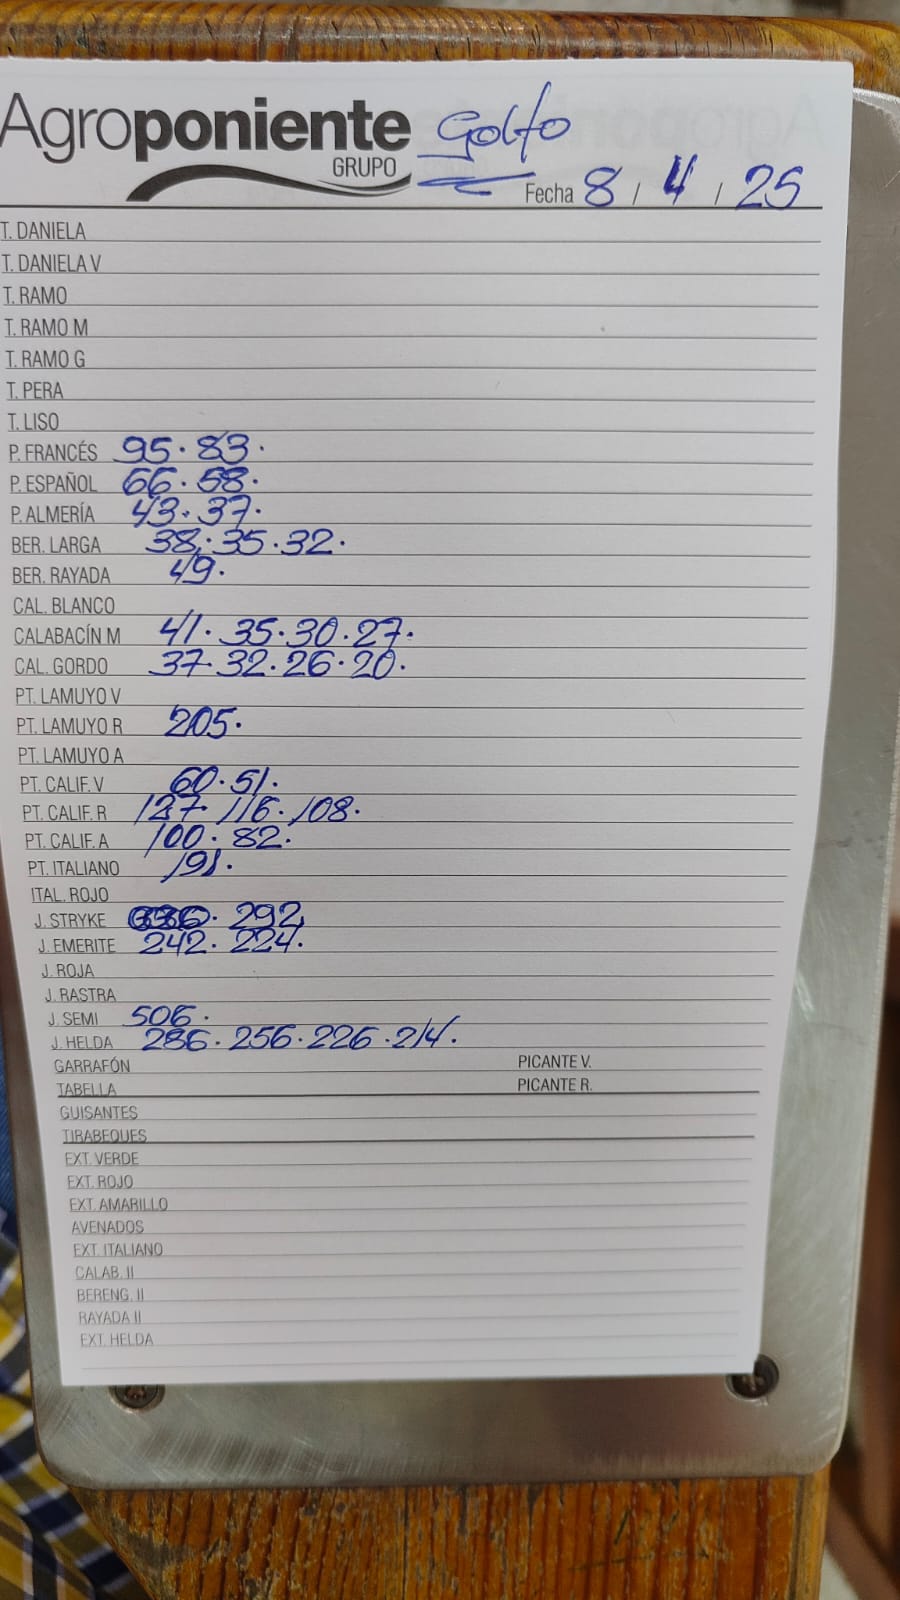 Agroponiente Golfo
GRUPO
Fecha 8 / 4 / 25
T. DANIELA
T. DANIELA V
T. RAMO
T. RAMO M
T. RAMO G
T. PERA
T. LISO
P. FRANCÉS 95. 83.
P. ESPAÑOL 66. 58.
P. ALMERÍA 43. 37.
BER. LARGA 38. 35. 32.
BER. RAYADA 49.
CAL. BLANCO
CALABACÍN M 41. 35. 30. 27.
CAL. GORDO 37. 32. 26. 20.
PT. LAMUYO V
PT. LAMUYO R 205.
PT. LAMUYO A
PT. CALIF. V 60. 51.
PT. CALIF. R 127. 116. 108.
PT. CALIF. A 100. 82.
PT. ITALIANO 191.
ITAL. ROJO
J. STRYKE 292
J. EMERITE 242. 224.
J. ROJA
J. RASTRA
J. SEMI 506.
J. HELDA 286. 256. 226. 214.
GARRAFÓN PICANTE V.
TABELLA PICANTE R.
GUISANTES
TIRABEQUES
EXT. VERDE
EXT. ROJO
EXT. AMARILLO
AVENADOS
EXT. ITALIANO
CALAB. II
BERENG. II
RAYADA II
EXT. HELDA